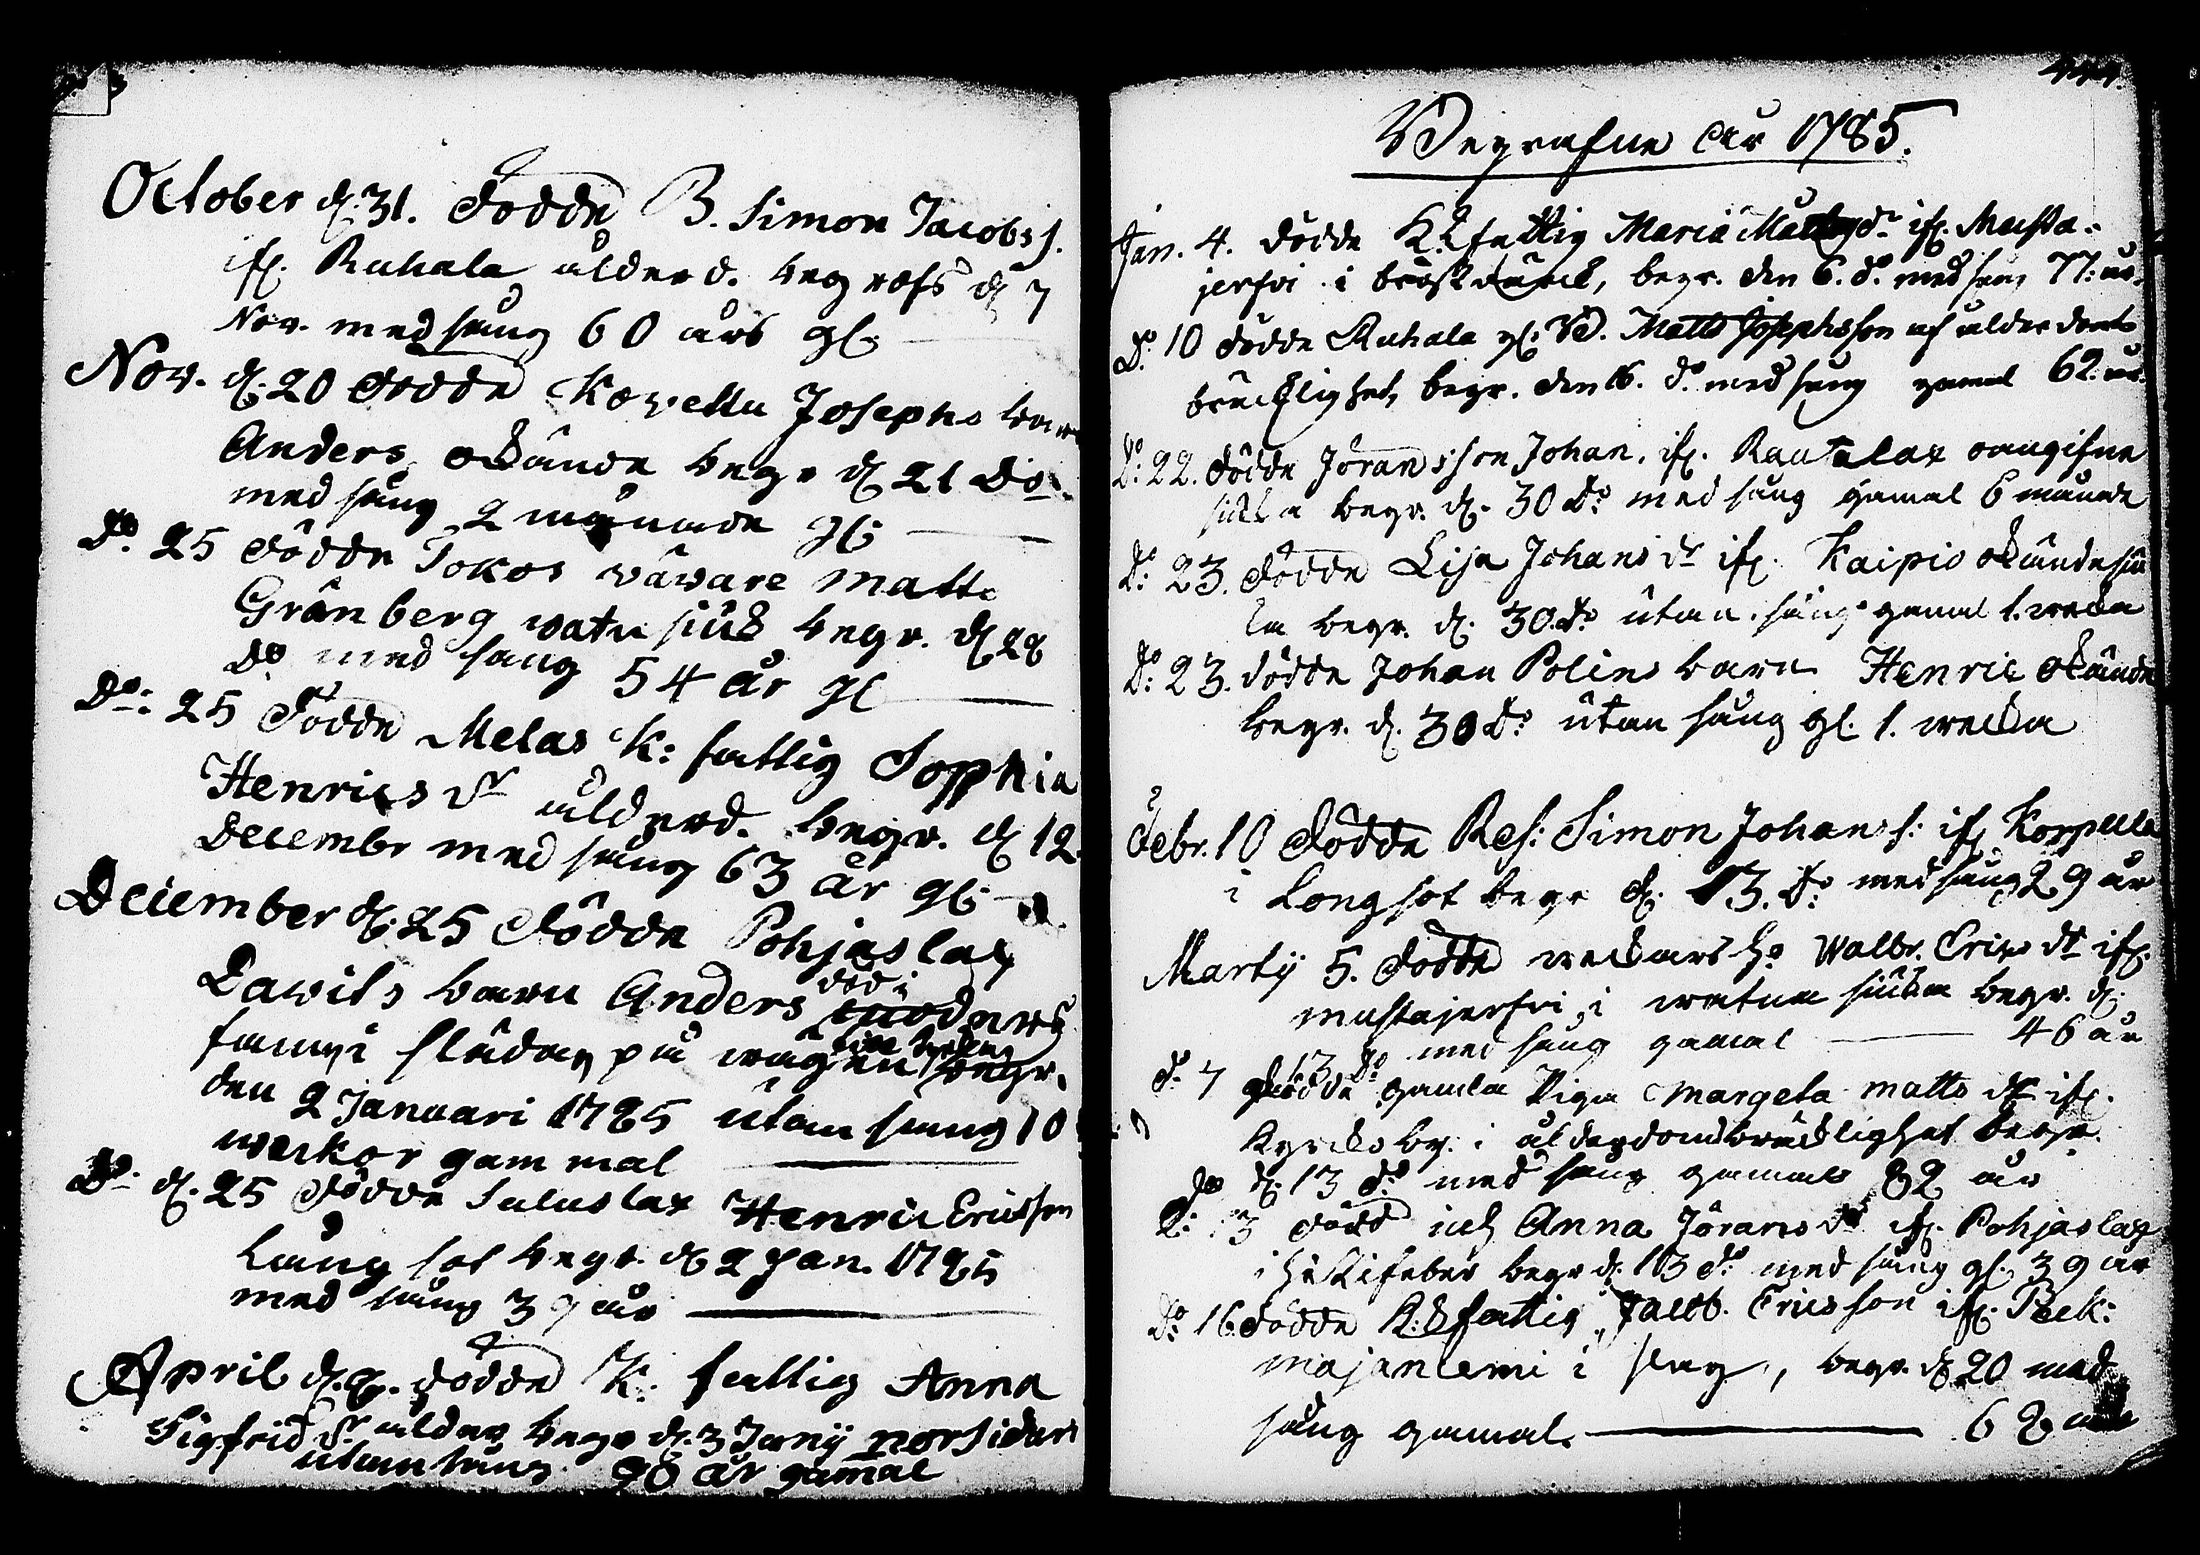 October d. 31. dödde B. Simon Jacobs s.
if. Ruhala ålderd. begrofs d 7
Nov. med sång 60 års gl.
Nov. d. 20 dödde Korpella Josephs barn
Anders okände begr d 21 Do.
med sång 2 månade gl.
Do. 25 dödde Jokos wäware Matts
Grönberg watu siuk begr. d 28
do med sång 54 år gl
Do: 25 dödde Melas K: fattig Sophia
Henrics dr ålderd. begr. d 12
Decembr med sång 63 år gl.
December d. 25 dödde Pohjaslax
Dawits barn Anders död i
famn i slädan på wägen begr.
den 2 Januari 1785 utan sång 10
weckor gammal
Do. d. 25 dödde Saluslax Henric Ericsson
Lungsot begr. d 2 Jan. 1785
med sång 39 år
April d. 2. dödde K. fattig Anna
Sigfrids dr ålder begr d. 3 Junij norsidan
utan sång 90 år gamal
Begrafne åår 1785.
Jan. 4. dödde K.fattig Maria Matts dr if. Musta-
jerfvi i bröstwärk, begr. den 6. do. med sång 77. år.
Do. 10 dödde Ruhala gl. Wd. Matts Josephsson af ålderdoms
bräcklighet, begr. den 16. do. med sång gamal 62. år.
Do: 22. dödde Jöransson Johan, if. Rautalax oangifne
siuka begr. d. 30 do med sång gamal 6 månade
Do: 23. dödde Lisa Johans dr if. Kaipio okände siu
ka begr. d. 30. do utan sång gamal 1. wecka
Do: 23. dödde Johan Polins barn Henric okände
begr. d. 30 do utan sång gl. 1. wecka
Febr. 10 dödde Ref: Simon Johans s: if Korpella
i Longsot begr d. 13. do. med sång 29 år
Martij 5. dödde Walbr. Erics dr if.
mustajerfvi i watun siukan begr. d.
13 do med sång gamal 46 år
do. 7 dödde gamla Piga Margeta Matts dr if.
Kyrckoby. i ålderdomsbräcklighet begr.
d. 13 do. med sång gammal 82 år
Do: 13 dödde Anna Jörans dr if. Pohjaslax
i hektifeber begr d. 13 do. med sång gl. 39 år
Do: 16. dödde K:fattig Jacob Ericsson if. Peck:
majaniemi i, begr. d 20 med
sång gamal. 68 år